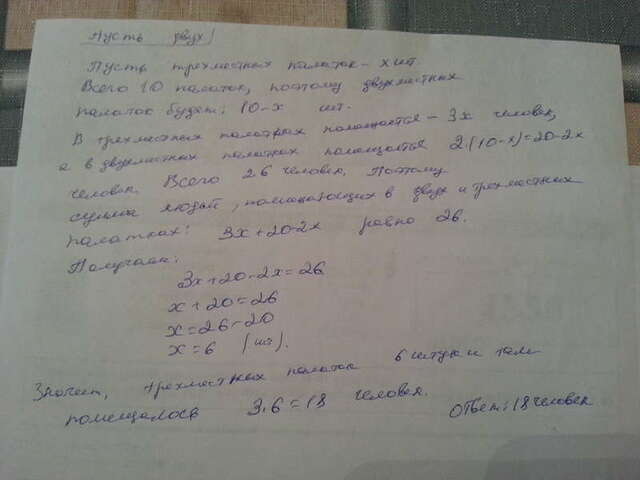 Пусть двух
Пусть трехместных палаток - x шт.
Всего 10 палаток, поэтому двухместных
палаток будет: 10-x шт.
В трехместных палатках помещается - 3x человек,
а в двухместных палатках помещается 2·(10-x)=20-2x
человек. Всего 26 человек. Поэтому
сумма людей, помещающихся в двух и трехместных
палатках: 3x+20-2x равно 26.
Получаем:
3x+20-2x=26
x+20=26
x=26-20
x=6 (шт).
Значит, трехместных палаток 6 штук и там
помещалось 3·6=18 человек.
Ответ: 18 человек